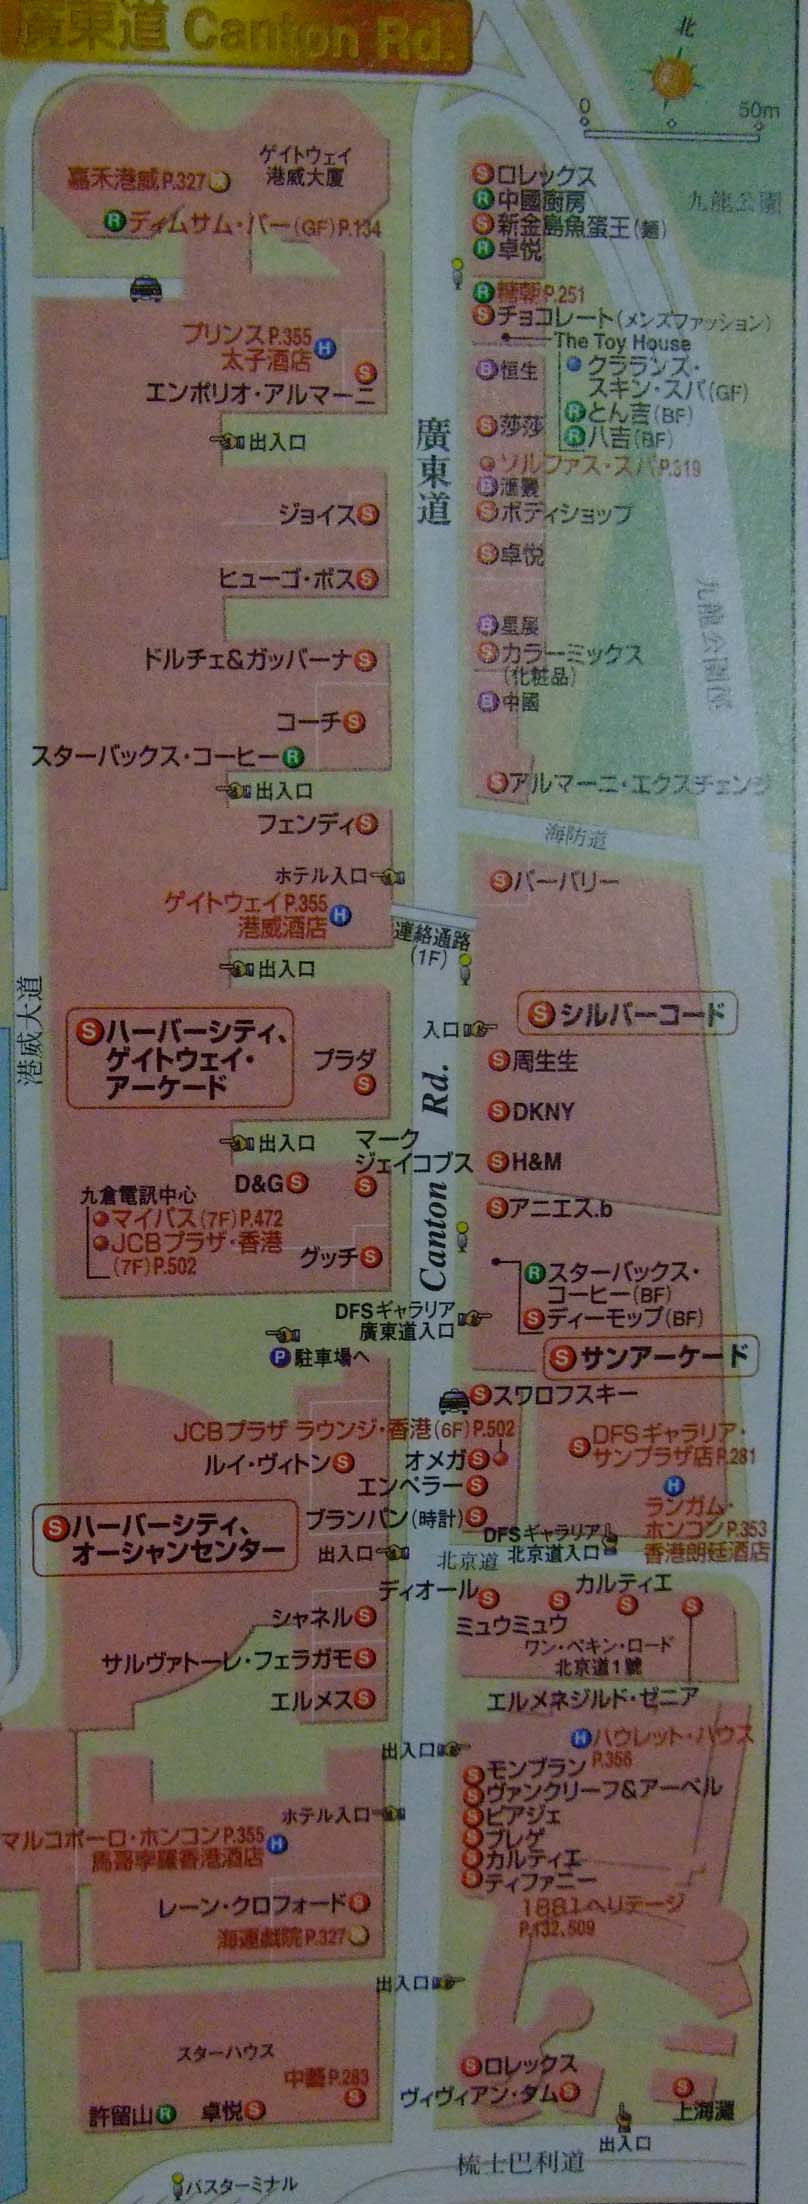 廣東道 Canton Rd.
北
0 50m
九龍公園
嘉禾港威P.327
ゲイトウェイ
港威大廈
R ディムサム・バー(GF)P.134
プリンスP.355
太子酒店 H
S
エンポリオ・アルマーニ
出入口
ジョイス S
ヒューゴ・ボス S
ドルチェ&ガッバーナ S
コーチ S
スターバックス・コーヒー R
出入口
フェンディ S
ホテル入口
ゲイトウェイP.355
港威酒店 H
出入口
S ハーバーシティ、
ゲイトウェイ・
アーケード
プラダ
S
出入口
マーク
ジェイコブス
S
D&G S
九倉電訊中心
マイバス(7F)P.472
JCBプラザ・香港
(7F)P.502
グッチ S
DFSギャラリア
廣東道入口
P 駐車場へ
JCBプラザ ラウンジ・香港(6F)P.502
ルイ・ヴィトン S
オメガ S
エンペラー S
ブランパン(時計) S
S ハーバーシティ、
オーシャンセンター
出入口
シャネル S
サルヴァトーレ・フェラガモ S
エルメス S
出入口
ホテル入口
マルコポーロ・ホンコンP.355
馬哥孛羅香港酒店 H
レーン・クロフォード S
海運戲院P.327
出入口
スターハウス
中藝P.283
S
許留山 R
卓悦 S
バスターミナル
港威大道
廣東道
Canton Rd.
S ロレックス
R 中國廚房
S 新金島魚蛋王(麺)
R 卓悦
R 糖朝P.251
S チョコレート(メンズファッション)
The Toy House
クラランズ・
スキン・スパ(GF)
R とん吉(BF)
R 八吉(BF)
B 恒生
S 莎莎
ソルファス・スパP.319
B 滙豐
S ボディショップ
S 卓悦
B 星展
S カラーミックス
(化粧品)
B 中國
S アルマーニ・エクスチェンジ
九龍公園徑
海防道
S バーバリー
連絡通路
(1F)
S シルバーコード
入口
S 周生生
S DKNY
S H&M
S アニエス.b
R スターバックス・
コーヒー(BF)
S ディーモップ(BF)
S サンアーケード
S スワロフスキー
S DFSギャラリア・
サンプラザ店P.281
H
ランガム・
ホンコンP.353
香港朗廷酒店
DFSギャラリア
北京道入口
北京道
ディオール S
S
ミュウミュウ
カルティエ
S
S
ワン・ペキン・ロード
北京道1號
エルメネジルド・ゼニア
H ハウレット・ハウス
P.356
S モンブラン
S ヴァンクリーフ&アーペル
S ピアジェ
S ブレゲ
S カルティエ
S ティファニー
1881ヘリテージ
P.132、509
S ロレックス
ヴィヴィアン・タム S
S
上海灘
出入口
梳士巴利道